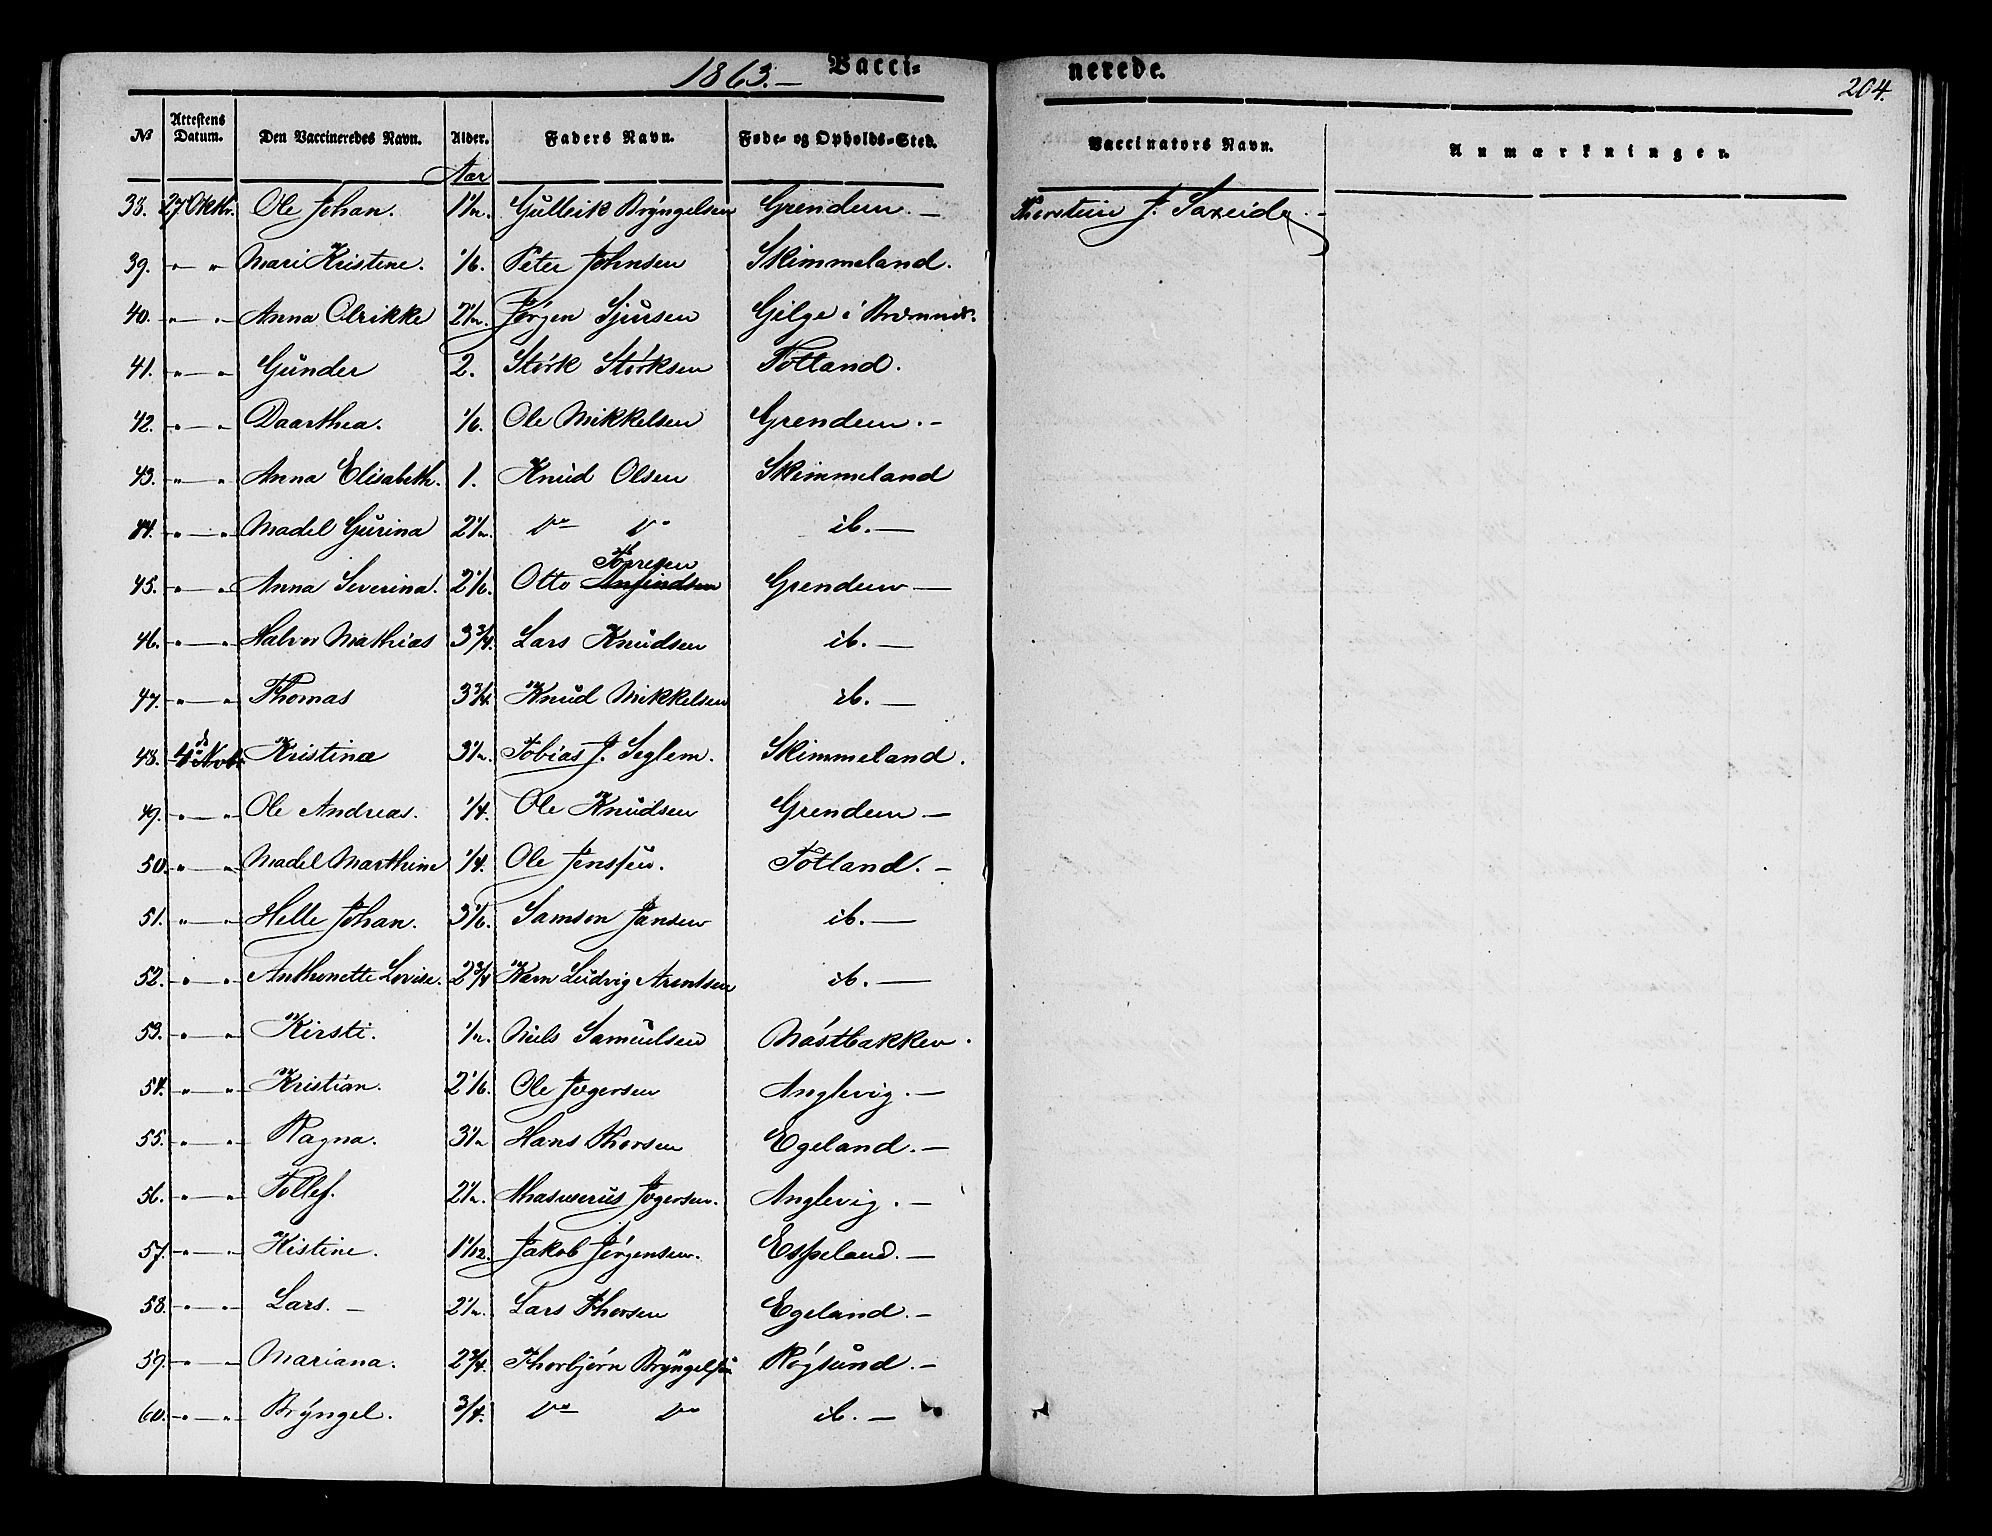 1863.— Vacci- nerede. 204.
№ Attestens Datum. Den Vaccineredes Navn. Alder. Faders Navn. Føde- og Opholds-Sted. Vaccinators Navn. Anmærkninger.
Aar
38. 27 Oktbr. Ole Johan. 1 1/2. Gulleik Brÿngelsen Grendem.— Thorstein J. Saxeide.—
39. " — " Mari Kristine. 1/6. Peter Johnsen Skimmeland.
40. " — " Anna Olrikke 2 1/2. Jørgen Sjursen Gilge i
41. " — " Gunder 2. Størk Størksen Totland.
42. " — " Daarthea. 1/6. Ole Mikkelsen Grendem.—
43. " — " Anna Elisabeth. 1. Knud Olsen Skimmeland
44. " — " Madel Gurina 2 1/2. do do ib.—
45. " — " Anna Severina. 2 1/6. Otto Anfindsen Torresen Grendem—
46. " — " Halvor Mathias 3 3/4. Lars Knudsen ib.—
47. " — " Thomas 3 3/4. Knud Mikkelsen ib.—
48. 4de Novbr. Kristina 3 1/2. Tobias J. Seglem. Skimmeland.
49. " — " Ole Andreas. 1/4. Ole Knudsen Grendem—
50. " — " Madel Marthine 1/4. Ole Jenssen. Totland.—
51. " — " Helle Johan. 3 1/6. Samson Jansen ib.—
52. " — " Anthonette Lovise. 2 3/4 Ludvig Arentsen ib.—
53. " — " Kirsti. 1/2. Niels Samuelsen Nøstbakken.
54. " — " Kristian. 2 1/6. Ole Jogersen Anglevig.—
55. " — " Ragna. 3 1/2 Hans Thorsen Egeland.—
56. " — " Tollef. 2 1/2. Ahasuerus Jogersen. Anglevig.—
57. " — " Kistine. 1 1/12. Jakob Jørgensen. Espeland.—
58. " — " Lars.— 2 1/2. Lars Thorsen Egeland.—
59. " — " Mariana. 2 3/4. Thorbjørn Brÿngelsen Røgsund.—
60. " — " Brÿngel. 3/4. do do ib.—